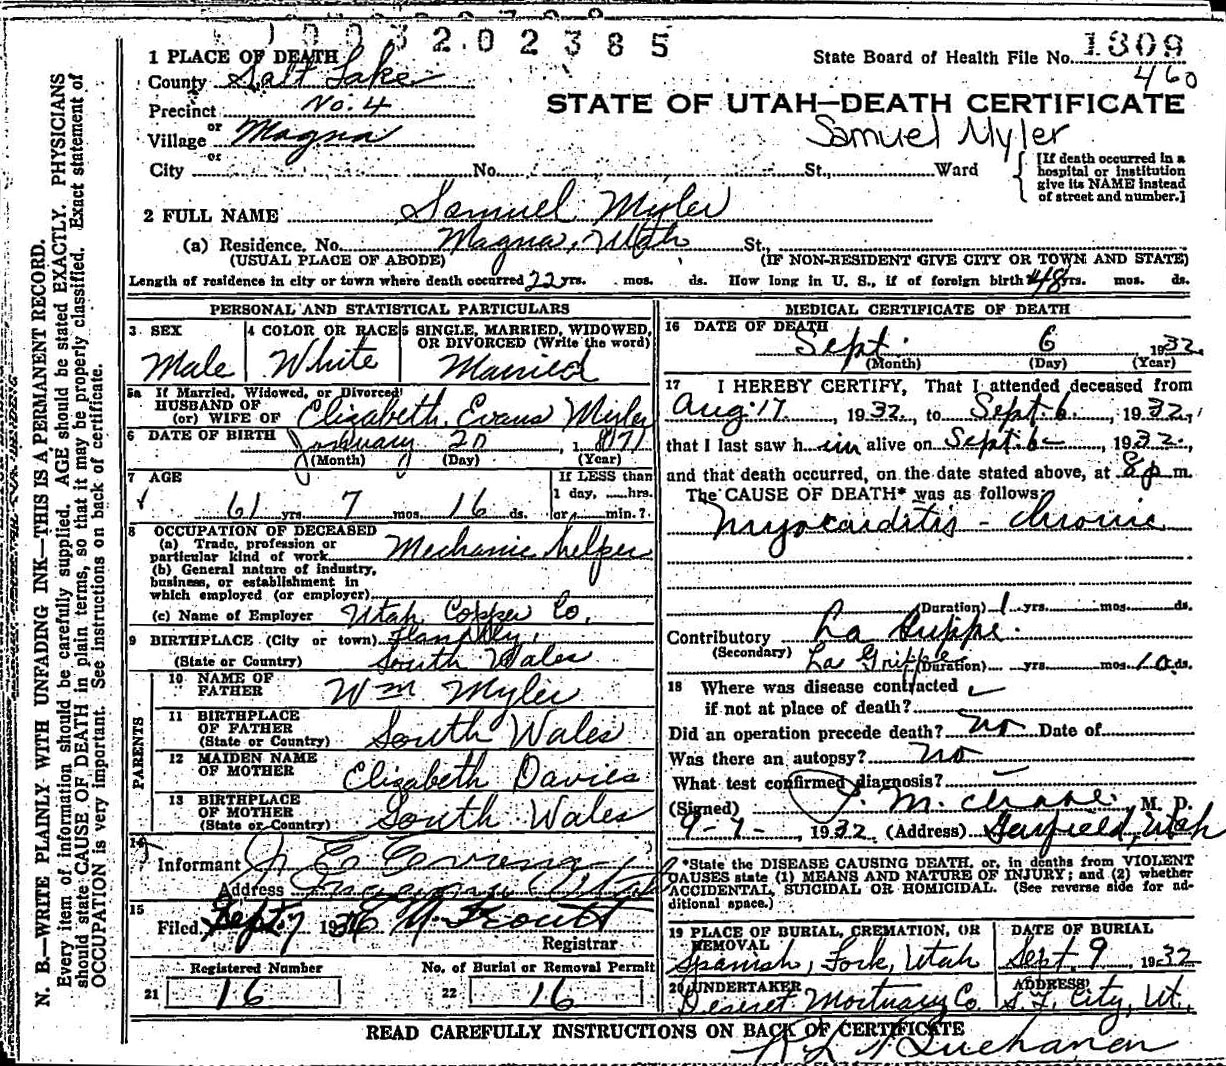 1003202385
State Board of Health File No. 1309
460
1 PLACE OF DEATH
County Salt Lake
Precinct No. 4
or
Village Magna
or
City No. St., Ward
STATE OF UTAH—DEATH CERTIFICATE
Samuel Myler
[If death occurred in a
hospital or institution
give its NAME instead
of street and number.]
2 FULL NAME Samuel Myler
(a) Residence, No. Magna, Utah St.,
(USUAL PLACE OF ABODE) (IF NON-RESIDENT GIVE CITY OR TOWN AND STATE)
Length of residence in city or town where death occurred 22 yrs. mos. ds. How long in U. S., if of foreign birth 48 yrs. mos. ds.
PERSONAL AND STATISTICAL PARTICULARS
3 SEX
Male
4 COLOR OR RACE
White
5 SINGLE, MARRIED, WIDOWED,
OR DIVORCED (Write the word)
Married
5a If Married, Widowed, or Divorced
HUSBAND OF
(or) WIFE OF Elizabeth Evans Myler
6 DATE OF BIRTH January 20, 1871
(Month) (Day) (Year)
7 AGE
61 yrs 7 mos. 16 ds.
If LESS than
1 day, hrs.
or min.?
8 OCCUPATION OF DECEASED
(a) Trade, profession or
particular kind of work Mechanic helper
(b) General nature of industry,
business, or establishment in
which employed (or employer)
(c) Name of Employer Utah Copper Co.
9 BIRTHPLACE (City or town)
(State or Country) South Wales
PARENTS
10 NAME OF
FATHER Wm Myler
11 BIRTHPLACE
OF FATHER
(State or Country) South Wales
12 MAIDEN NAME
OF MOTHER Elizabeth Davies
13 BIRTHPLACE
OF MOTHER
(State or Country) South Wales
14
Informant
Address Magna Utah
15
Filed Sept. 7 19
Registrar
Registered Number
21 16
No. of Burial or Removal Permit
22 16
MEDICAL CERTIFICATE OF DEATH
16 DATE OF DEATH
Sept. 6 1932
(Month) (Day) (Year)
17 I HEREBY CERTIFY, That I attended deceased from
Aug 17, 1932, to Sept. 6, 1932,
that I last saw him alive on Sept. 6, 1932,
and that death occurred, on the date stated above, at 8 p m.
The CAUSE OF DEATH* was as follows:
Myocarditis - chronic
(Duration) 1 yrs. mos. ds.
Contributory La Grippe.
(Secondary) La Grippe (Duration) yrs mos 10 ds.
18 Where was disease contracted
if not at place of death?
Did an operation precede death? no Date of
Was there an autopsy? no
What test confirmed diagnosis?
(Signed) M. D.
9-7-, 1932 (Address) Garfield, Utah
*State the DISEASE CAUSING DEATH, or, in deaths from VIOLENT
CAUSES state (1) MEANS AND NATURE OF INJURY; and (2) whether
ACCIDENTAL, SUICIDAL OR HOMICIDAL. (See reverse side for ad-
ditional space.)
19 PLACE OF BURIAL, CREMATION, OR
REMOVAL
Spanish Fork, Utah
DATE OF BURIAL
Sept. 9, 1932
20 UNDERTAKER
Deseret Mortuary Co.
ADDRESS
S. L. City, Ut.
READ CAREFULLY INSTRUCTIONS ON BACK OF CERTIFICATE
Buchanan
N. B.—WRITE PLAINLY WITH UNFADING INK—THIS IS A PERMANENT RECORD.
Every item of information should be carefully supplied. AGE should be stated EXACTLY. PHYSICIANS
should state CAUSE OF DEATH in plain terms, so that it may be properly classified. Exact statement of
OCCUPATION is very important. See instructions on back of certificate.